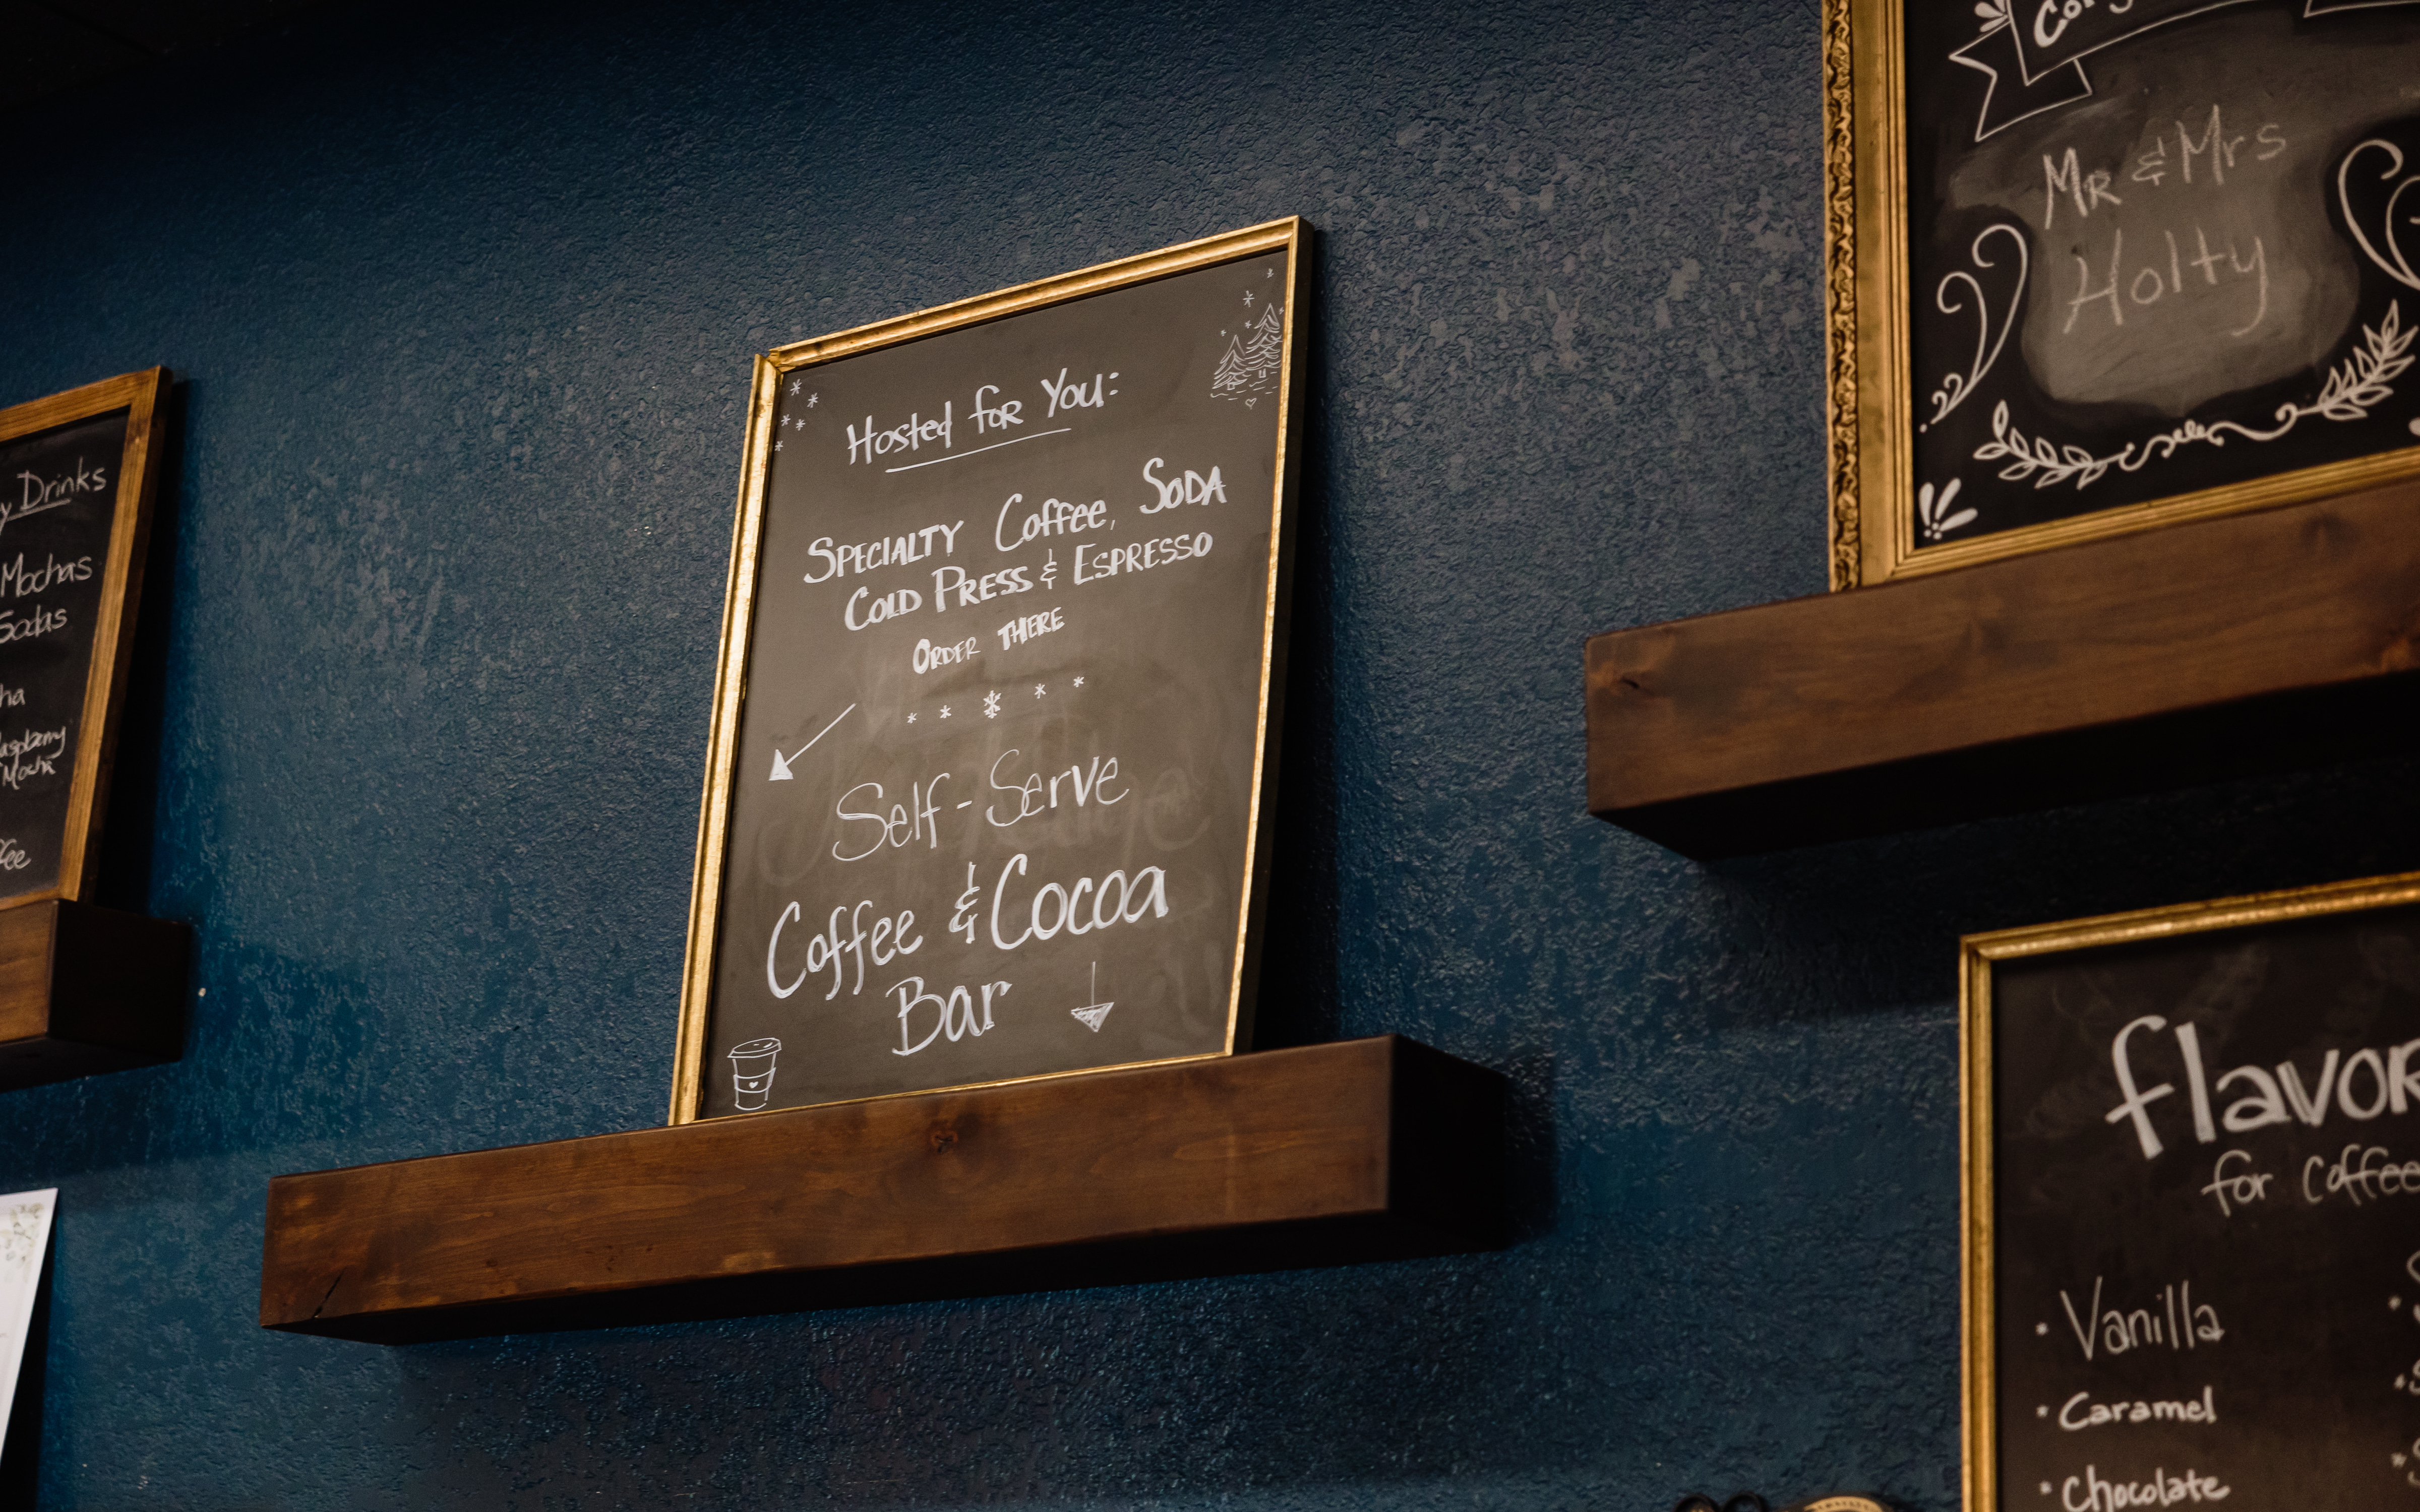 Drinks
Mochas
Sodas
Mocha
Hosted for You:
SPECIALTY Coffee, SODA
COLD PRESS & ESPRESSO
ORDER THERE
Self-Serve
Coffee & Cocoa
Bar
MR & Mrs
Holty
for Coffee
Vanilla
Caramel
Chocolate